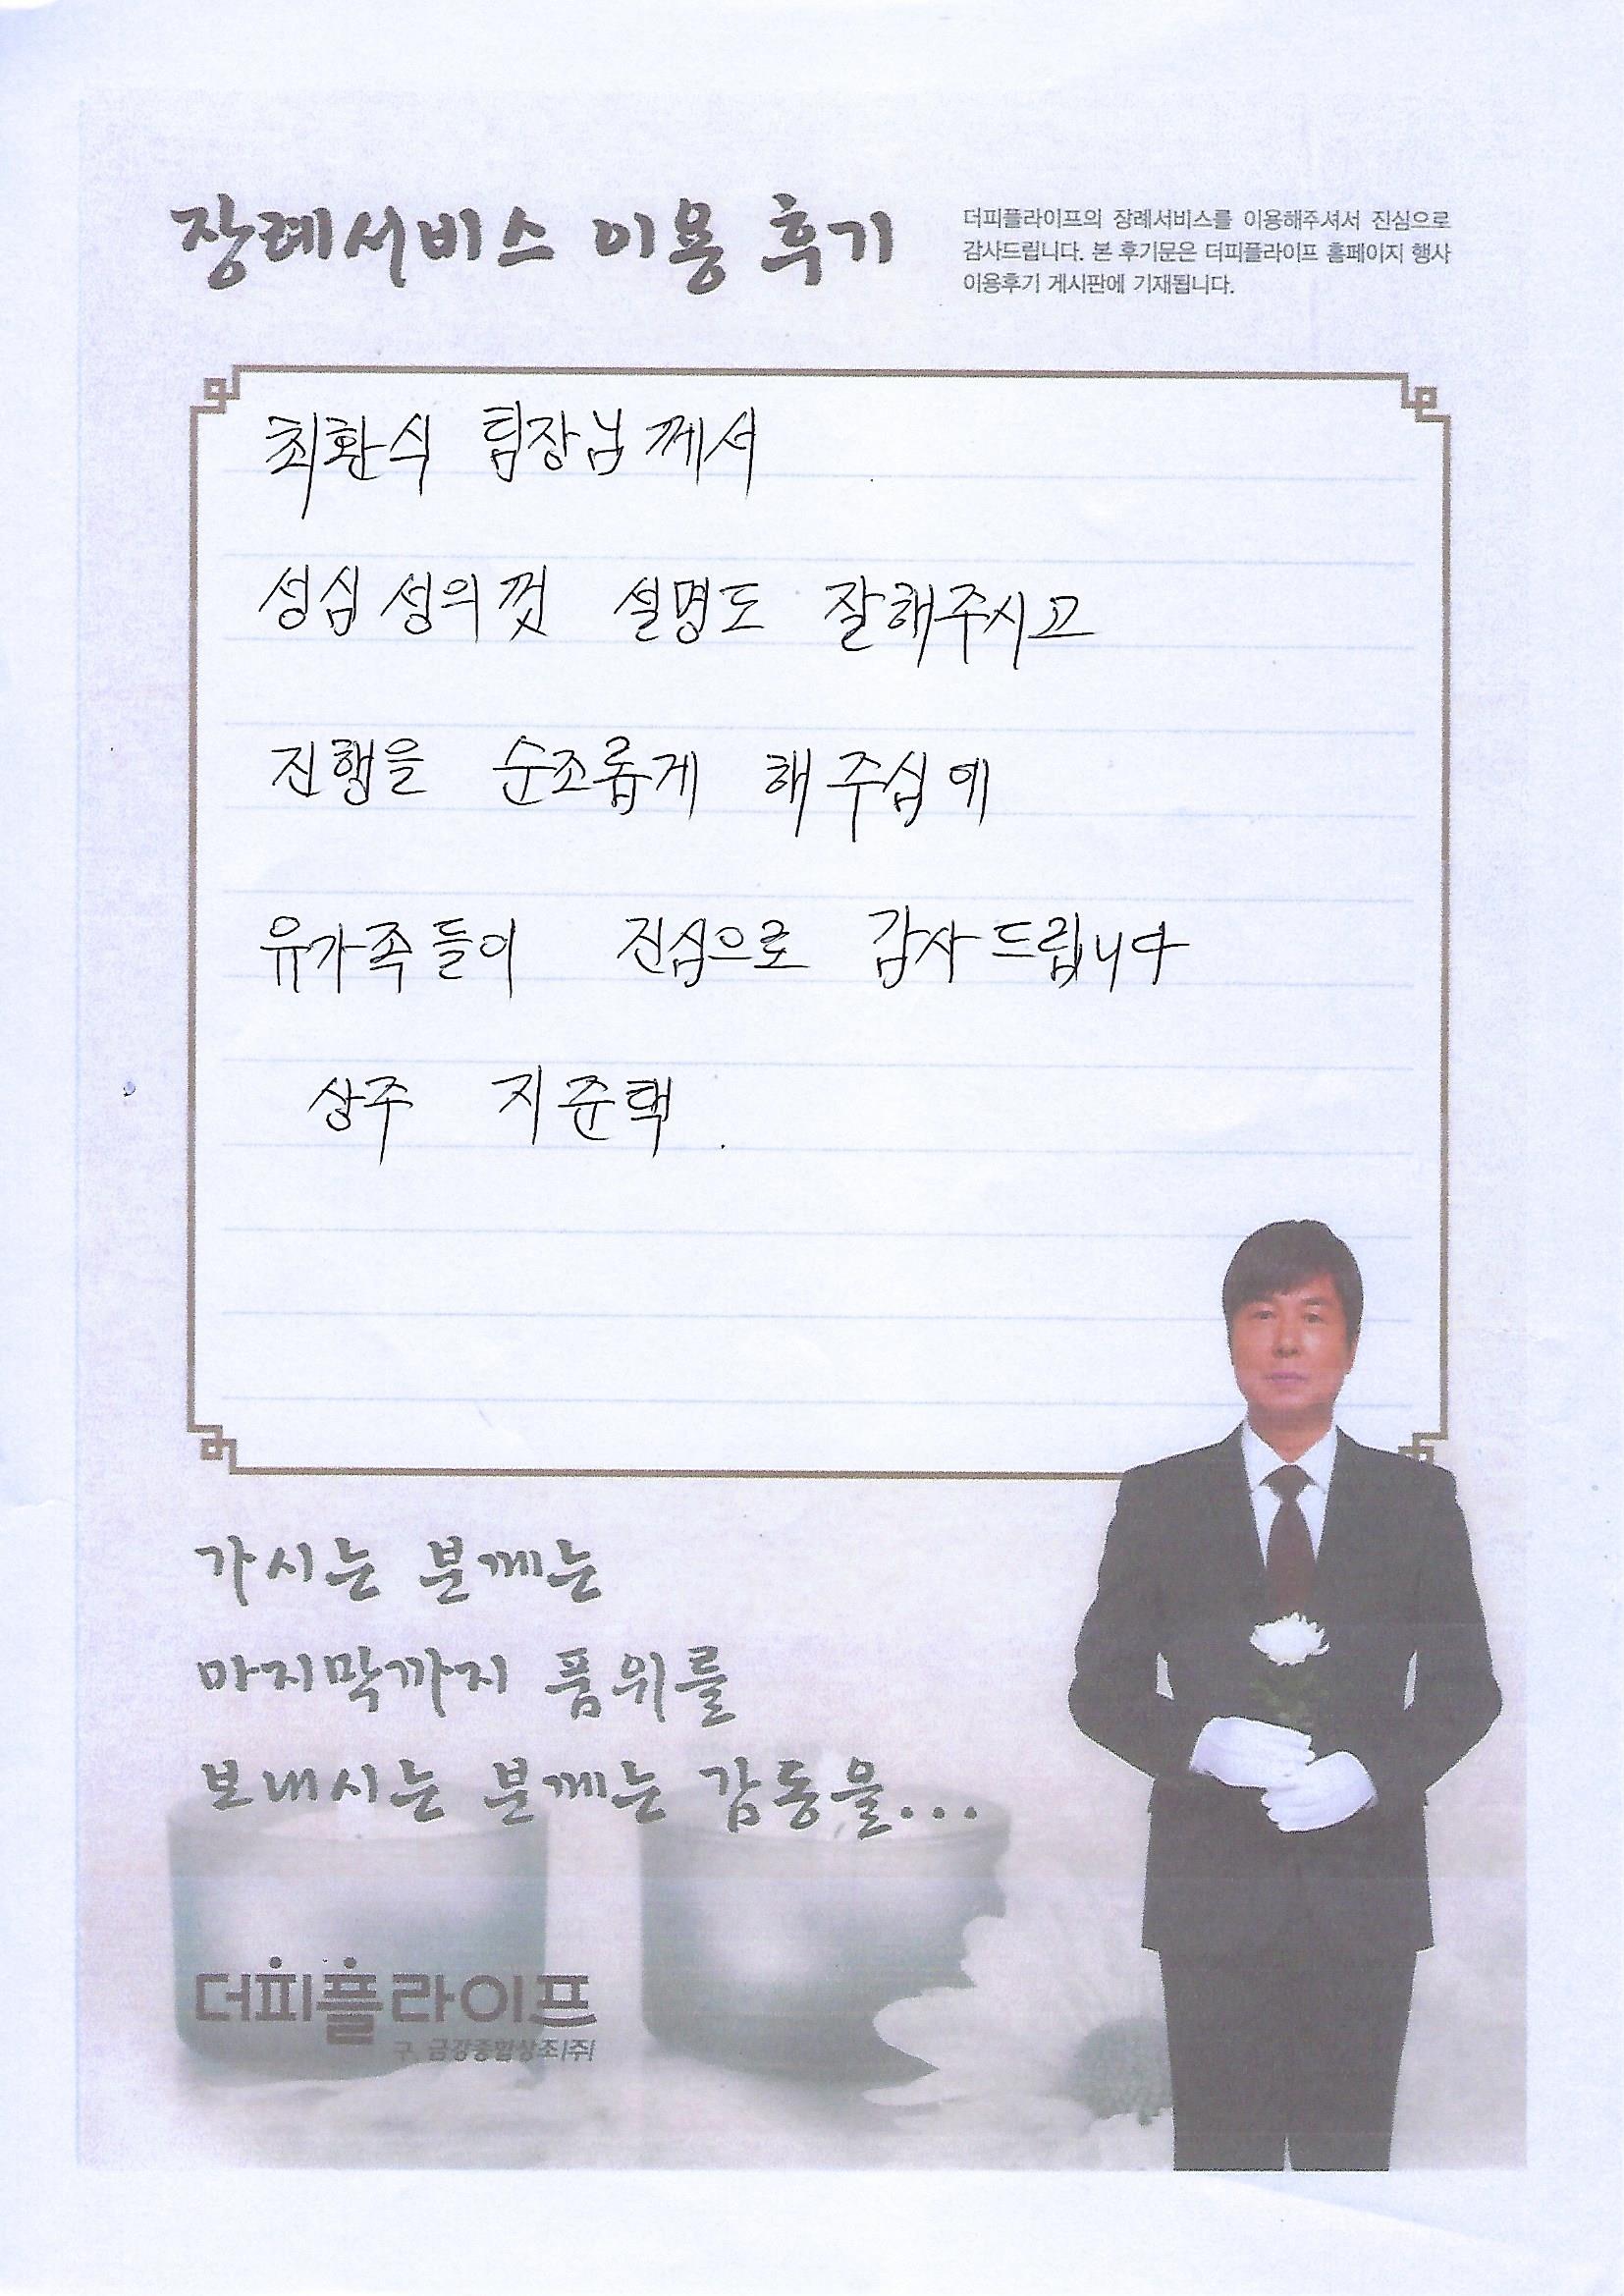 장례서비스 이용 후기
더피플라이프의 장례서비스를 이용해주셔서 진심으로
감사드립니다. 본 후기문은 더피플라이프 홈페이지 행사
이용후기 게시판에 기재됩니다.
최환식 팀장님께서
성심 성의껏 설명도 잘해주시고
진행을 순조롭게 해주심에
유가족들이 진심으로 감사드립니다
상주 지준택.
가시는 분께는
마지막까지 품위를
보내시는 분께는 감동을...
더피플라이프
구 금강종합상조(주)